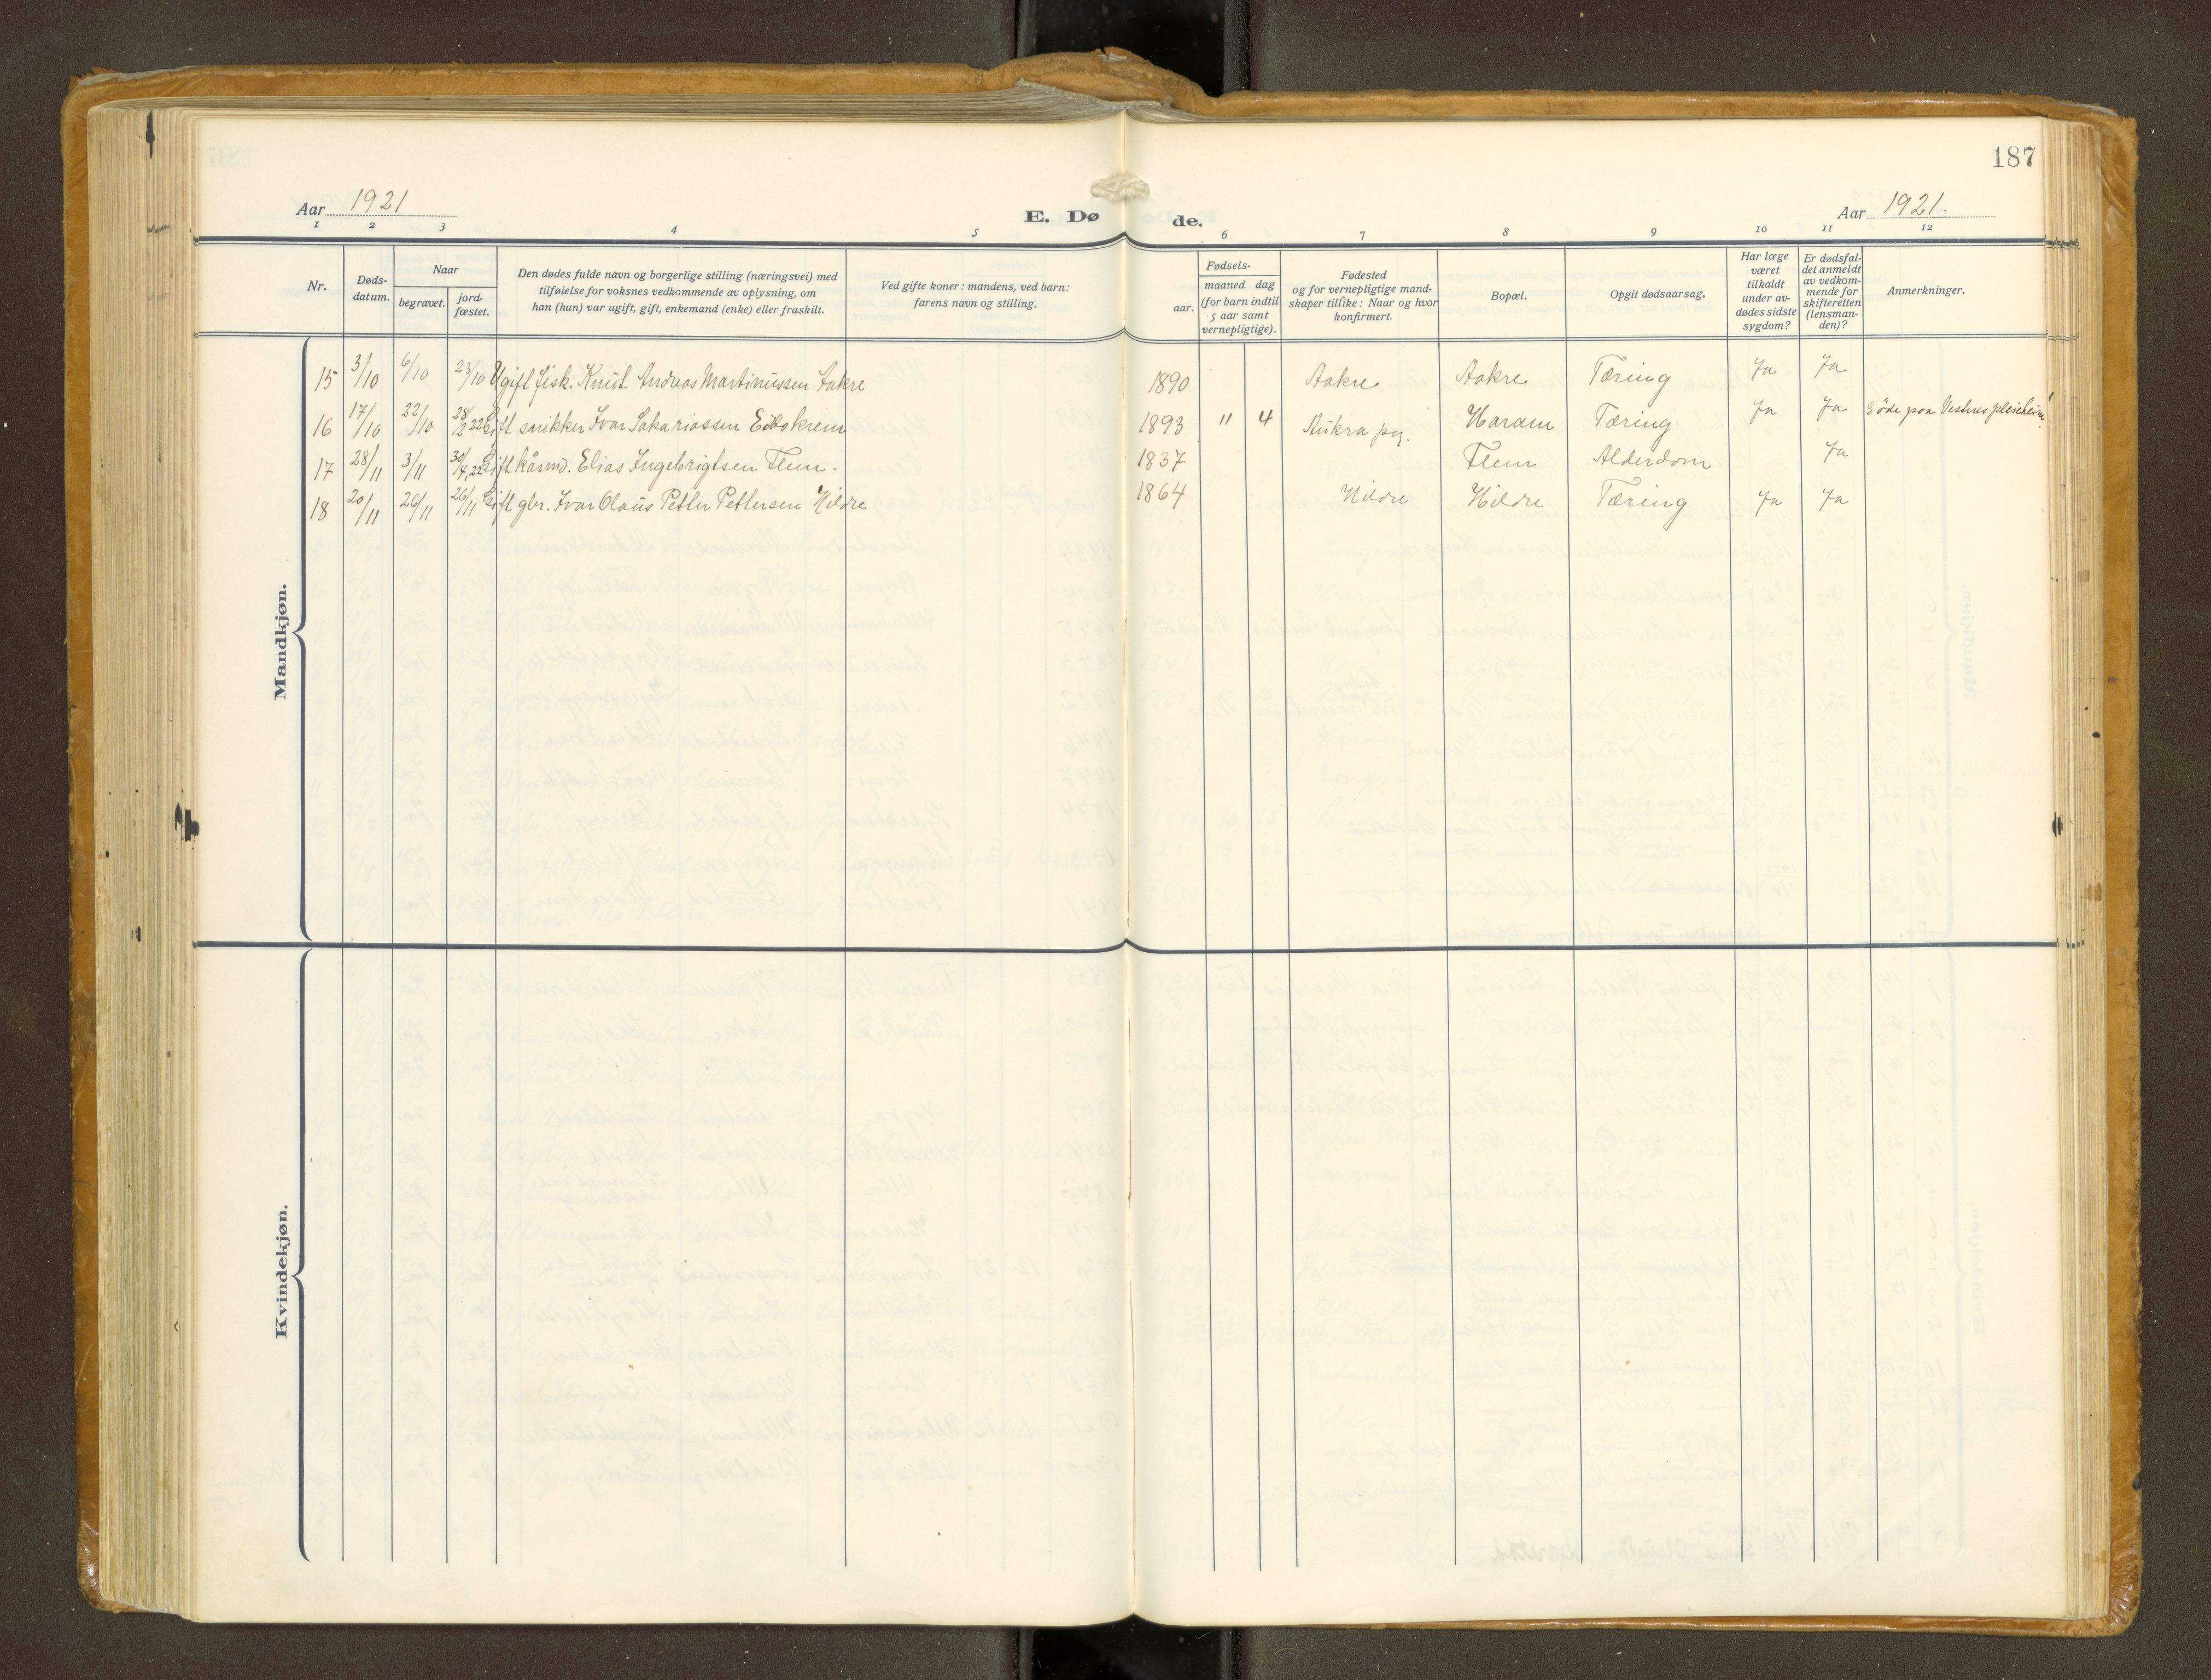 187
Aar 1921
E. Døde.
Aar 1921.
1 2 3 4 5 6 7 8 9 10 11 12
Nr.
Døds-
datum.
Naar
begravet.
jord-
fæstet.
Den dødes fulde navn og borgerlige stilling (næringsvei) med
tilføielse for voksnes vedkommende av oplysning, om
han (hun) var ugift, gift, enkemand (enke) eller fraskilt.
Ved gifte koner: mandens, ved barn:
farens navn og stilling.
Fødsels-
aar.
maaned dag
(for barn indtil
5 aar samt
vernepligtige).
Fødested
og for vernepligtige mand-
skaper tillike: Naar og hvor
konfirmert.
Bopæl.
Opgit dødsaarsag.
Har læge
været
tilkaldt
under av-
dødes sidste
sygdom?
Er dødsfal-
det anmeldt
av vedkom-
mende for
skifteretten
(lensman-
den)?
Anmerkninger.
Mandkjøn.
15 3/10 6/10 23/10 Ugift fisk. Knut Andreas Martinussen Aakre 1890 Aakre Aakre Tæring Ja Ja
16 17/10 22/10 28/2 22 Gift snikker Ivar Sakariassen Eidskrem 1893 11 4 Aukra pg. Haram Tæring Ja Ja Døde paa Vestnes pleieheim!
17 28/11 3/11 30/4.22 Gift kårmd. Elias Ingebrigtsen Flem. 1837 Flem Alderdom Ja
18 20/11 26/11 26/11 Gift gbr. Ivar Olaus Petter Pettersen Hildre 1864 Hildre Hildre Tæring Ja Ja
Kvindekjøn.